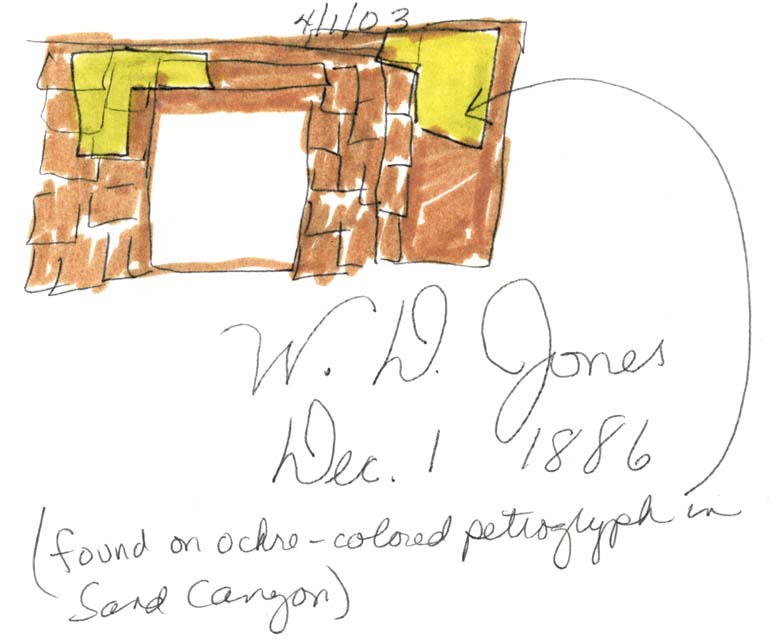 4/1/03
W. D. Jones
Dec. 1 1886
(found on ochre-colored petroglyph in
Sand Canyon)